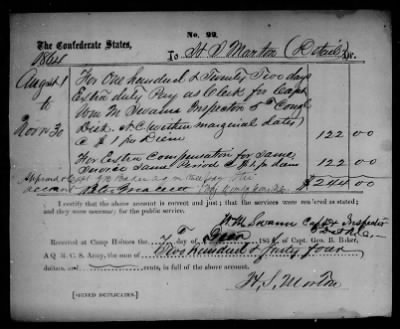 No. 22.
The Confederate States,
1864 To H S Morton (Detail) Dr.
August 1 For One hundred & Twenty Two days
to Extra duty Pay as Clerk for Capt
Nov 30 Wm M Swann Inspector 5th Cong
Dist. N.C. (within marginal dates)
@ $1 per Diem 122 00
For Extra Compensation for Same
Service Same Period @ $1 per diem 122 00
account $244.00
I certify that the above account is correct and just; that the services were rendered as stated; and they were
necessary, for the public service.
W M Swann Capt & Inspector
5 Dist N.C.
Received at Camp Holmes the 7th day of Decr 1864, of Capt. Geo. B. Baker,
A Q M. C. S. Army, the sum of Two hundred & forty four
dollars, and cents, in full of the above account.
H. S. Morton
[SIGNED DUPLICATES.]